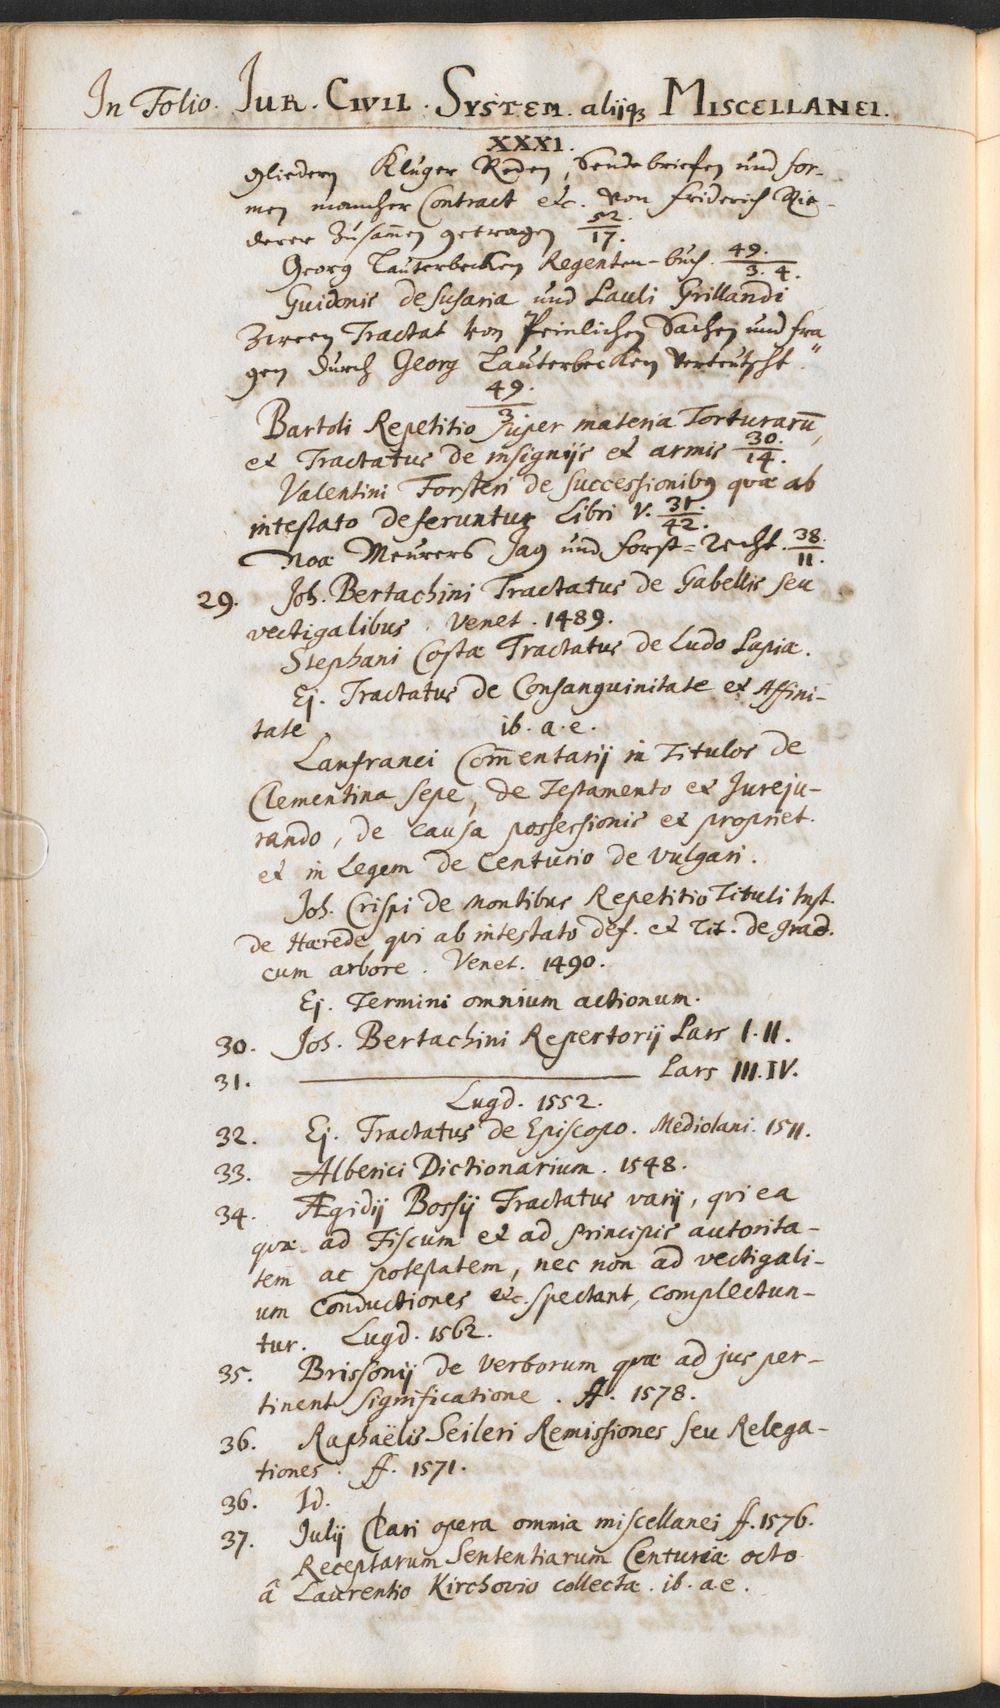 In Folio. Jur. Civil. System. aliiq3 Miscellanei.
XXXI.
gliedern Kluger Reden, Sendebriefen und for-
men mancher Contract etc. von Friderich Rie-
derer zusam̄en getragen 52./17.
Georg Lauterbecken Regenten-buch. 49./3. 4.
Guidonis de Susaria und Pauli Grillandi
Zween Tractat von Peinlichen Sachen und fra
gen durch Georg Lauterbecken verteutscht.
49./3
Bartoli Repetitio super materia Torturarū,
et Tractatus de insignijs et armis 30./14.
Valentini Forsteri de successionibq quæ ab
intestato deferuntur Libri V. 31./42.
Noæ Meurers Jag und forst=Recht. 38./11.
29. Joh. Bertachini Tractatus de Gabellis seu
vectigalibus. Venet. 1489.
Stephani Costæ Tractatus de Ludo Papiæ.
Ej. Tractatus de Consanguinitate et Affini-
tate ib. a. e.
Lanfranci Com̄entarij in Titulos de
Clementina sepe, de Testamento et Jureju-
rando, de causa possessionis et propriet.
et in Legem de Centurio de vulgari.
Joh. Crispi de Montibus Repetitio Tituli Inst.
de Hærede, qui ab intestato def. et Tit. de grad.
cum arbore. Venet. 1490.
Ej. Termini omnium actionum.
30. Joh. Bertachini Repertorij Pars I. II.
31. ——— Pars III. IV.
Lugd. 1552.
32. Ej. Tractatus de Episcopo. Mediolani. 1511.
33. Alberici Dictionarium. 1548.
34. Ægidij Bossij Tractatus varij, qui ea
quæ ad Fiscum et ad Principis autorita-
tem ac potestatem, nec non ad vectigali-
um conductiones etc. spectant, complectun-
tur. Lugd. 1562.
35. Brissonij de verborum quæ ad jus per-
tinent significatione. ff. 1578.
36. Raphaëlis Seileri Remissiones seu Relega-
tiones. ff. 1571.
36. Id.
37. Julij Clari opera omnia miscellanei ff. 1576.
Receptarum Sententiarum Centuriæ octo
â Laurentio Kirchovio collectæ. ib. a. e.